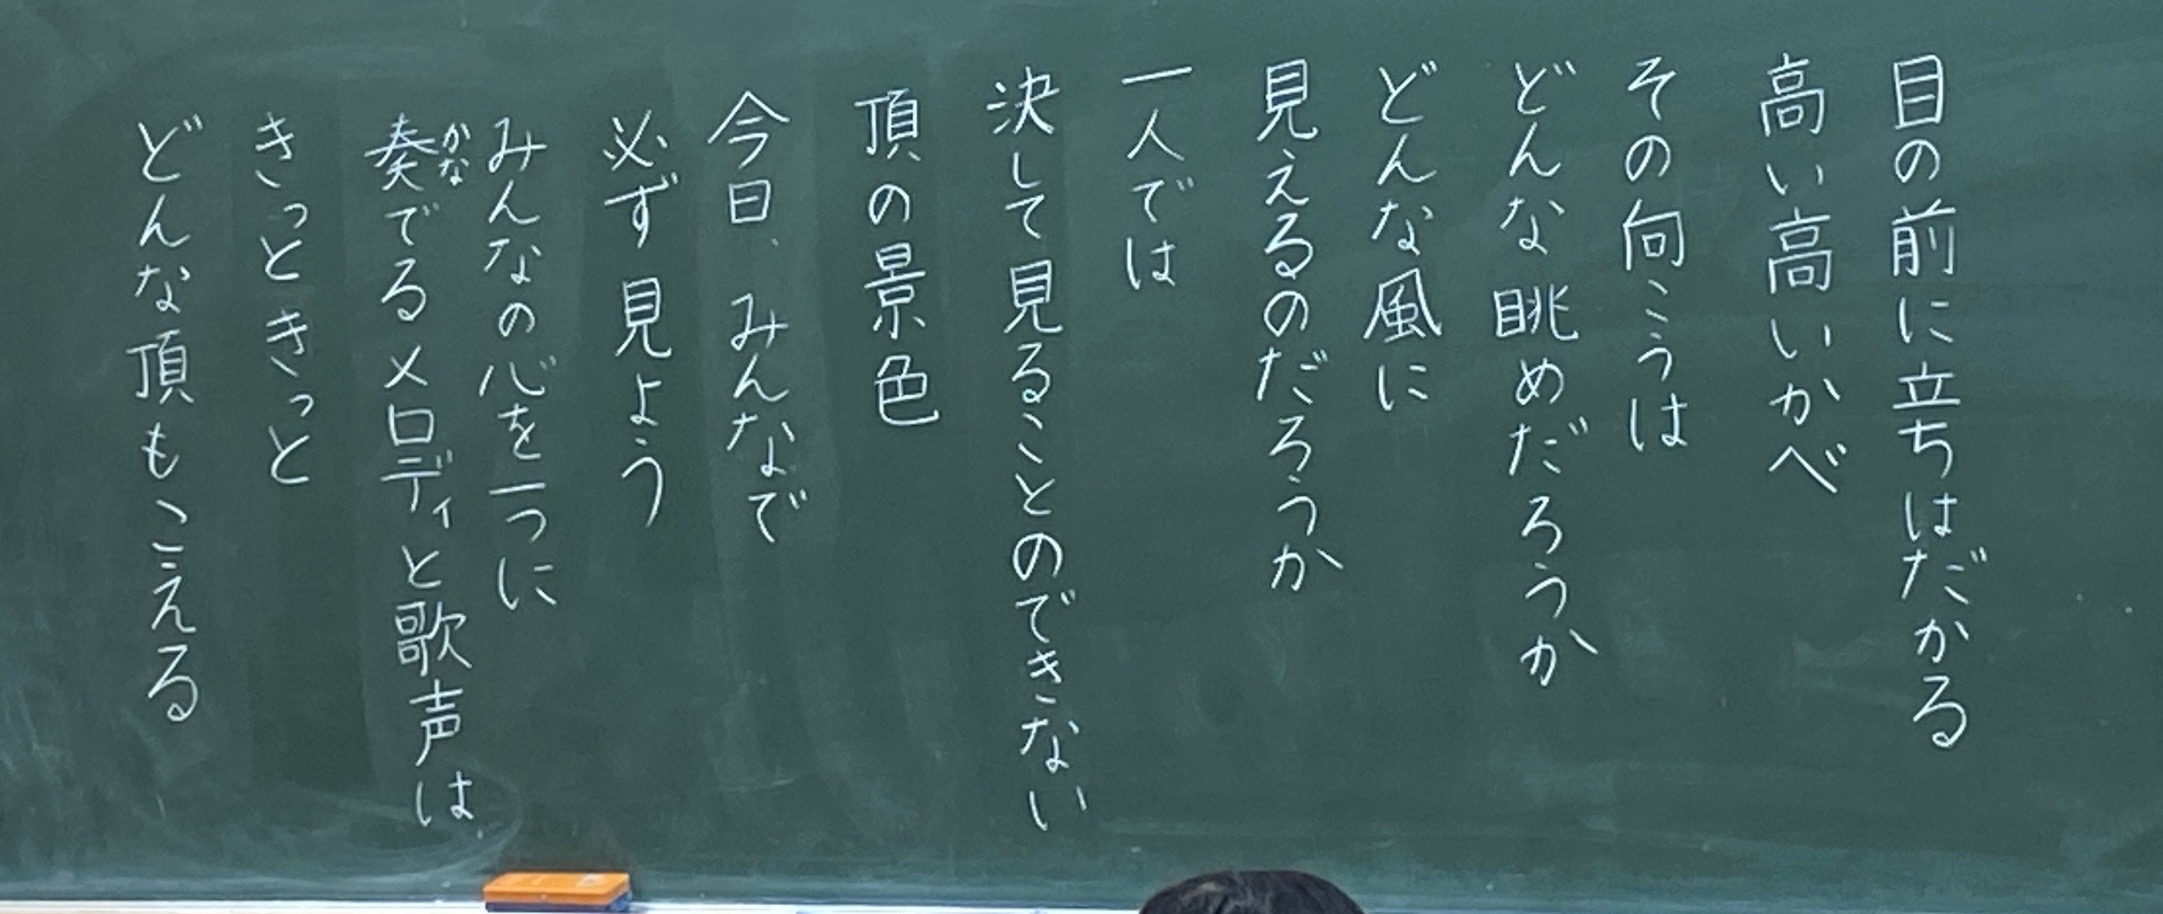 目の前に立ちはだかる
高い高いかべ
その向こうは
どんな眺めだろうか
どんな風に
見えるのだろうか
一人では
決して見ることのできない
頂の景色
今日、みんなで
必ず見よう
みんなの心を一つに
かな
奏でるメロディと歌声は
きっときっと
どんな頂もこえる